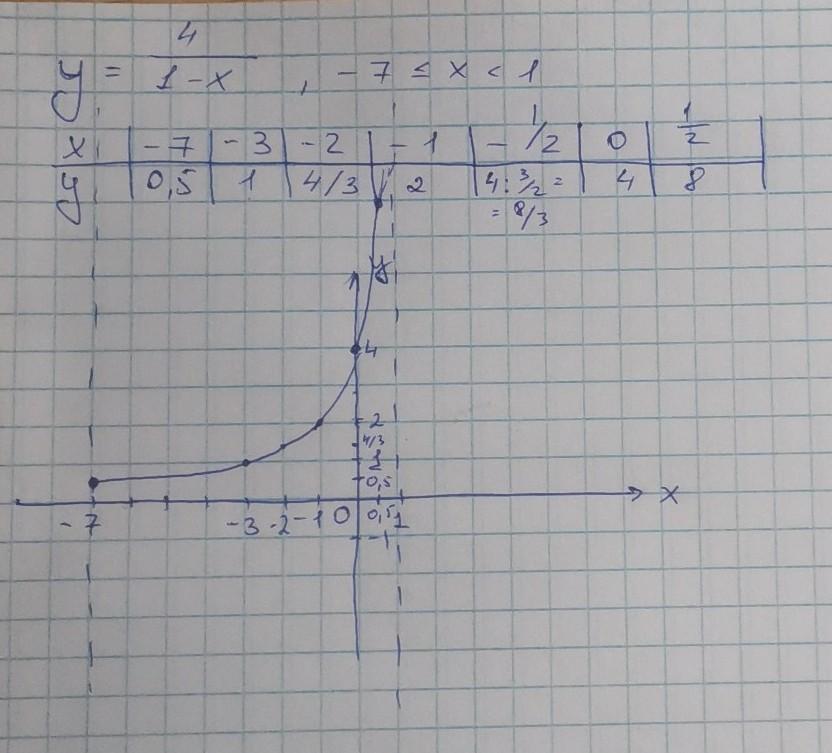 y = 4/(1-x) , -7 ≤ x < 1
x | -7 | -3 | -2 | -1 | -1/2 | 0 | 1/2
y | 0,5 | 1 | 4/3 | 2 | 4:3/2= | 4 | 8
= 8/3
y
4
2
4/3
1
0,5
x
-7 -3 -2 -1 0 0,5 1
-1